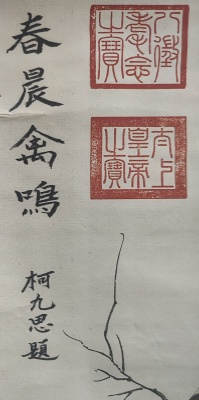 春晨禽鳴
柯九思題
八徵耄念之寶
太上皇帝之寶